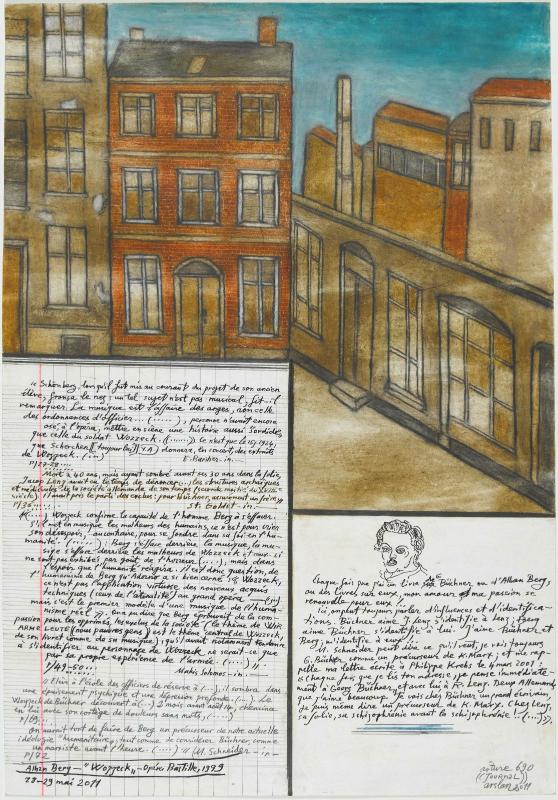 « Schönberg, lorsqu'il fut mis au courant du projet de son ancien
élève, fronça le nez : un tel sujet n'est pas musical, fit-il
remarquer. La musique est l'affaire des anges, non celle
des ordonnances d'officier... (......), personne n'avait encore
osé, à l'opéra, mettre en scène une histoire aussi sordide
que celle du soldat Wozzeck. (......) Ce n'est que le 1924,
que Scherchen [toujours lui] (Y.A) donnera, en concert, des extraits
de Wozzeck. (in) E. Barilier-in-
P/27-29....
Mort à 40 ans, mais ayant sombré avant ses 30 ans dans la folie,
Jacob Lenz avait eu le temps de dénoncer, les structures archaïques
et médiévales de la société allemande de son temps (seconde moitié du XVIIIe
siècle). Il avait pris le parti des exclus: pour Büchner, assurément un frère.
P/36.... St. Goldet-in-
Wozzeck confirme la capacité de l'homme Berg à s'effacer.
S'il met en musique les malheurs des humains, ce n'est pas vers
son dessous, au contraire, pour se fondre dans sa foi en l'hu-
manité. (.....) Berg s'efface derrière la musique, la mu-
sique s'efface derrière les malheurs de Wozzeck
ne sont pas exhibés par goût de l'horreur (....), mais dans
l'espoir que l'humanité réagisse. Il est donc question, de
l'humanisme de Berg qu'Adorno a si bien cerné Si Wozzeck
ce n'est pas l'application virtuose des nouveaux acquis
techniques (ceux de l'atonalité) au grand opéra
mais c'est le premier modèle d'une musique de l'huma-
nisme réel On a pu dire que Berg éprouvait de la com-
passion pour les opprimés, les exclus de la société (le thème de WIR
ARME LEUTE (nous pauvres gens) est le thème central de Wozzeck,
de son livret comme de sa musique), qu'il avait notamment tendance
à s'identifier au personnage de Wozzeck ne serait-ce que
par sa propre expérience de l'armée. (....)
P/49-50.... Makis Solomos-in-
« Élève à l'école des officiers de réserve à (...), il sombra dans
une épuisement psychique et une dépression profonde, (...) Le
Woyzeck de Büchner découvert à (...) 2 mois avant août 14, chemina
en lui avec son cortège de douleurs sans nom, (.....)
P/69...
On aurait tort de faire de Berg un précurseur de notre actuelle
idéologie humanitaire, tout comme de considérer Büchner comme
un marxiste avant l'heure. (....) (M. Schneider-in-
P/72
Alban Berg - "Wozzeck" - Opéra Bastille, 1999
28-29 mai 2011
Chaque fois que j'ai un livre de Büchner, ou d'Alban Berg,
ou des livres sur eux, mon amour ma passion se
renouvelle pour eux...
On peut toujours parler d'influences et d'identifica-
tions. Büchner aime J. Lenz, s'identifie à Lenz; Berg
aime Büchner, s'identifie à lui. J'aime Büchner et
Berg, m'identifie à eux!..
M. Schneider peut dire ce qu'il veut, je vois toujours
G. Büchner comme un précurseur de K. Marx; et je rap-
pelle ma lettre écrite à Philippe Krebs le 4 mars 2009:
« Chaque fois que je lis ton adresse, je pense immédiate-
ment à Georg Büchner, et avec lui à Lenz. Deux Allemands
que j'aime beaucoup. Tu vois chez Büchner un grand écrivain,
je suis même dire un précurseur de K. Marx. Chez Lenz,
sa folie, sa schizophrénie avant la schizophrénie! (...)
arture 630
(JOURNAL)
arslan 2011